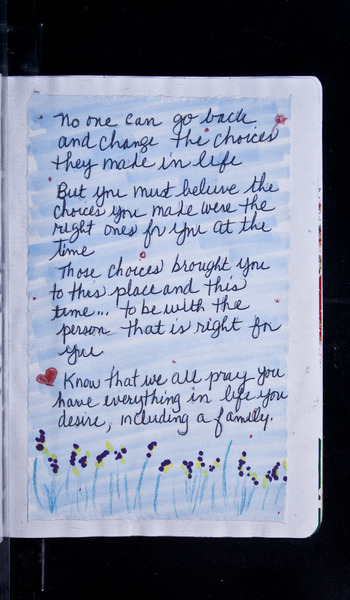 No one can go back
and change the choices
they made in life
But you must believe the
choices you made were the
right ones for you at the
time
Those choices brought you
to this place and this
time... to be with the
person that is right for
you
Know that we all pray you
have everything in life you
desire, including a family.